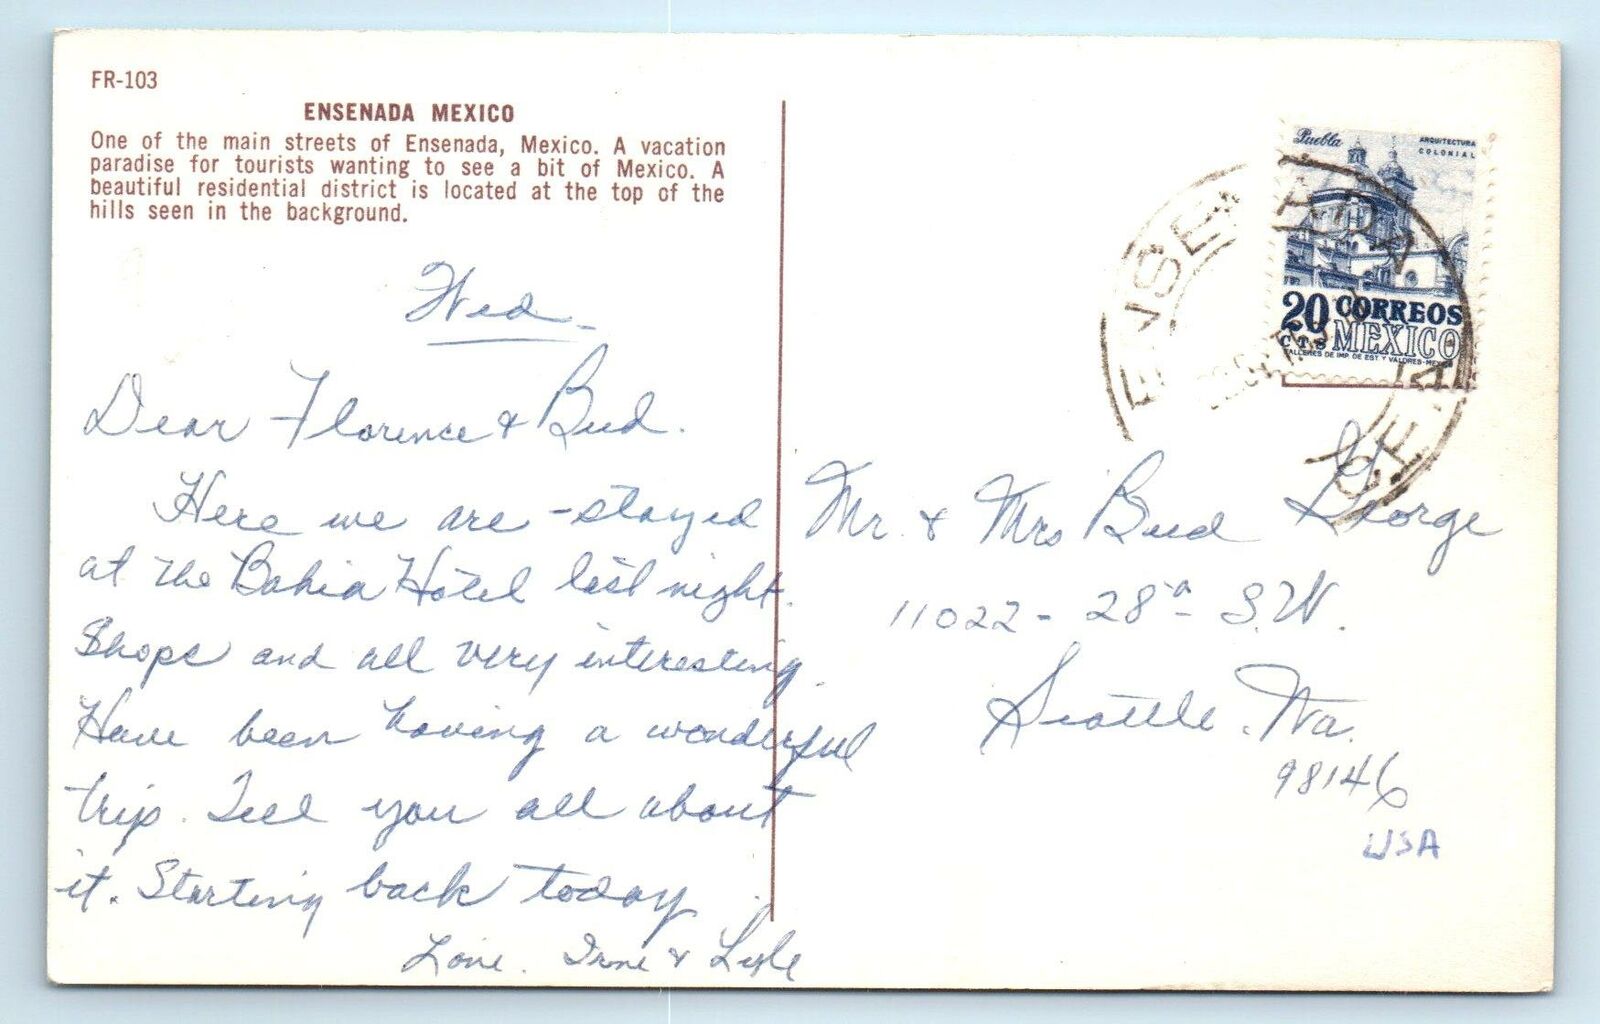 FR-103
ENSENADA MEXICO
One of the main streets of Ensenada, Mexico. A vacation
paradise for tourists wanting to see a bit of Mexico. A
beautiful residential district is located at the top of the
hills seen in the background.
Wed.
Dear Florence & Bud.
Here we are - stayed
at the Bahia Hotel last night.
Shops and all very interesting.
Have been having a wonderful
trip. Tell you all about
it. Starting back today.
Love. Irene & Lyle
Puebla
ARQUITECTURA
COLONIAL
20 CORREOS
CTS MEXICO
TALLERES DE IMP. DE EST. Y VALORES-MEXICO
ENSENADA
Mr. & Mrs Bud George
11022 - 28th S.W.
Seattle, Wa.
98146
USA